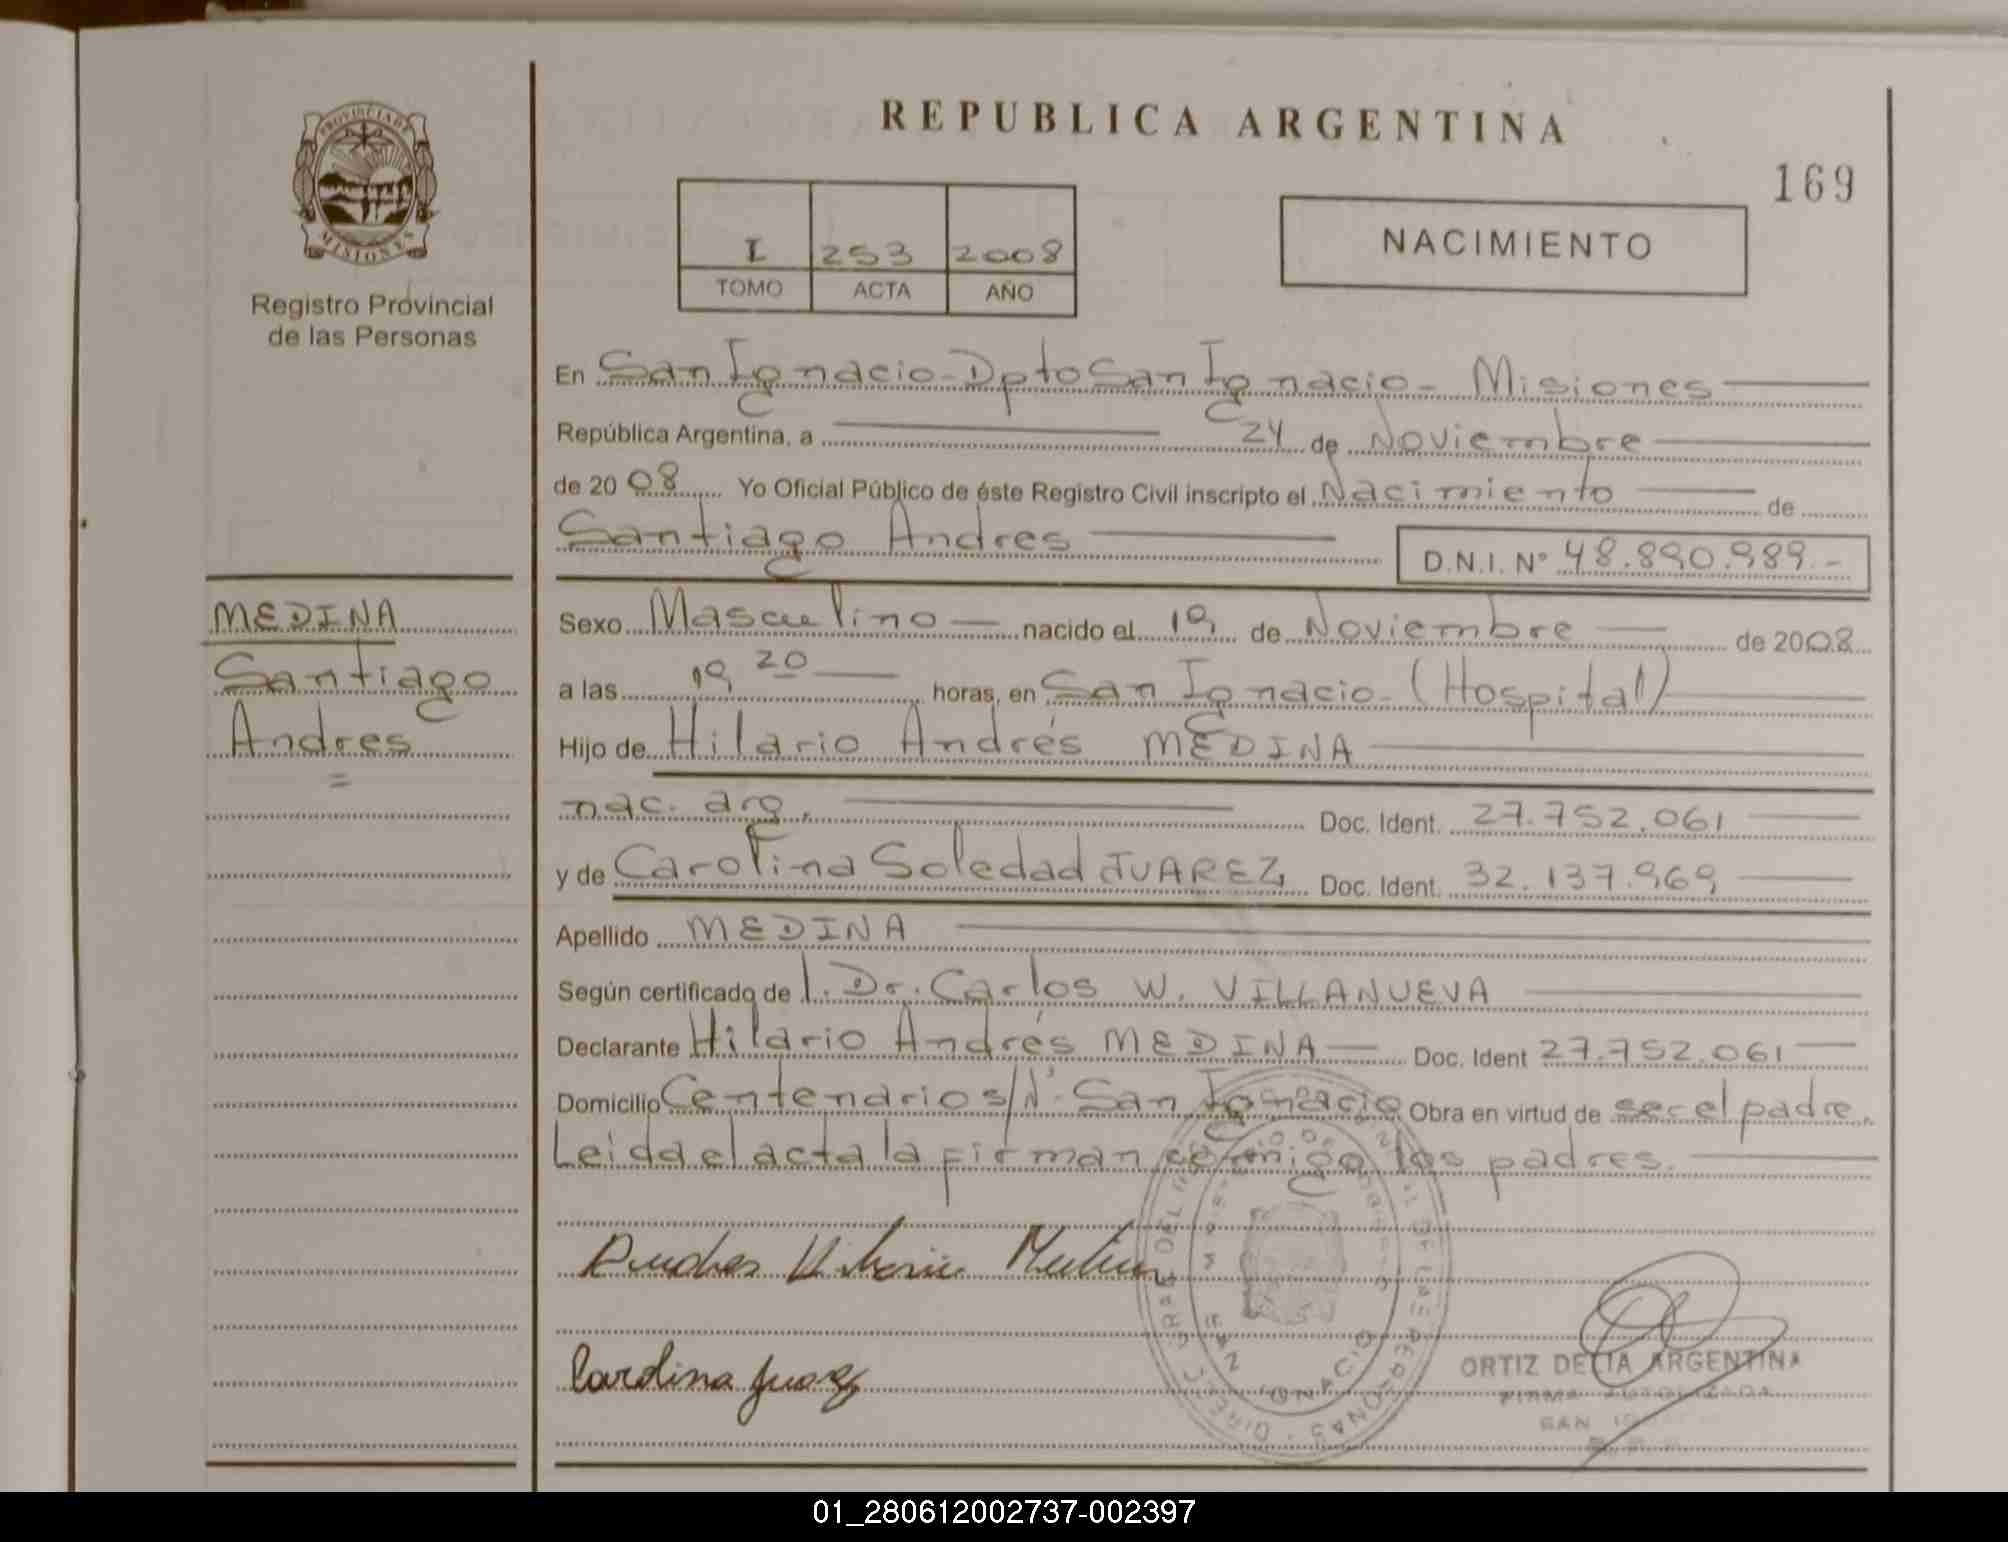 PROVINCIA DE
MISIONES
Registro Provincial
de las Personas
REPUBLICA ARGENTINA
169
I 253 2008
TOMO ACTA AÑO
NACIMIENTO
En San Ignacio - Dpto San Ignacio - Misiones
República Argentina, a 24 de Noviembre
de 2008 Yo Oficial Público de éste Registro Civil inscripto el Nacimiento de
Santiago Andres
D.N.I. Nº 48.890.989.-
MEDINA
Santiago
Andres
=
Sexo Masculino nacido el 19 de Noviembre de 2008
a las 19 20 horas, en San Ignacio - (Hospital)
Hijo de Hilario Andrés MEDINA
nac. arg. Doc. Ident. 27.752.061
y de Carolina Soledad JUAREZ Doc. Ident. 32.137.969
Apellido MEDINA
Según certificado de l. Dr. Carlos W. VILLANUEVA
Declarante Hilario Andrés MEDINA Doc. Ident 27.752.061
Domicilio Centenario s/Nº San Ignacio Obra en virtud de ser el padre.
Leida el acta la firman conmigo los padres.
Carolina Juarez
SAN IGNACIO
ORTIZ DELIA ARGENTINA
FIRMA AUTORIZADA
SAN
01_280612002737-002397